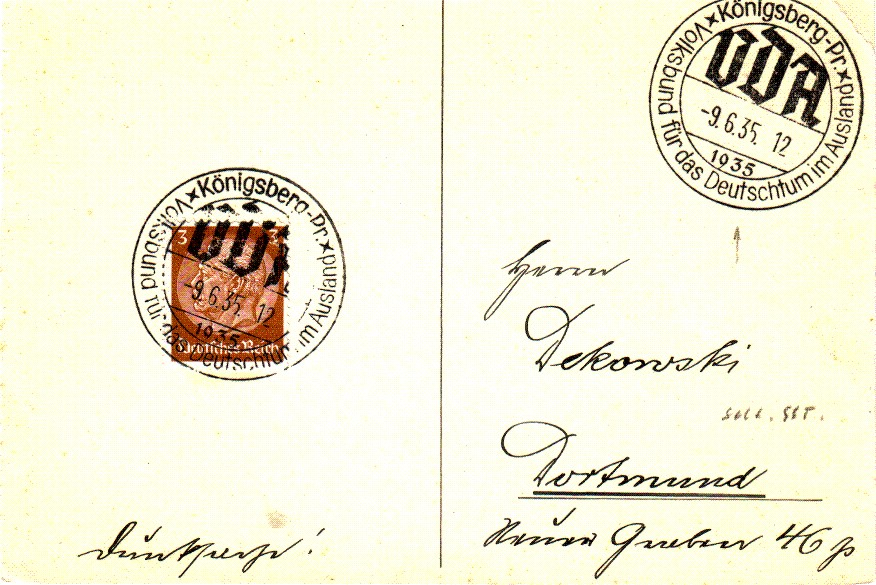 Königsberg-Pr.
VDA
-9.6.35. 12
1935
Volksbund für das Deutschtum im Ausland
Königsberg-Pr.
VDA
-9.6.35. 12
1935
Volksbund für das Deutschtum im Ausland
3
Deutsches Reich
Herrn
Dekowski
Dortmund
Neuer Graben 46
Drucksache!